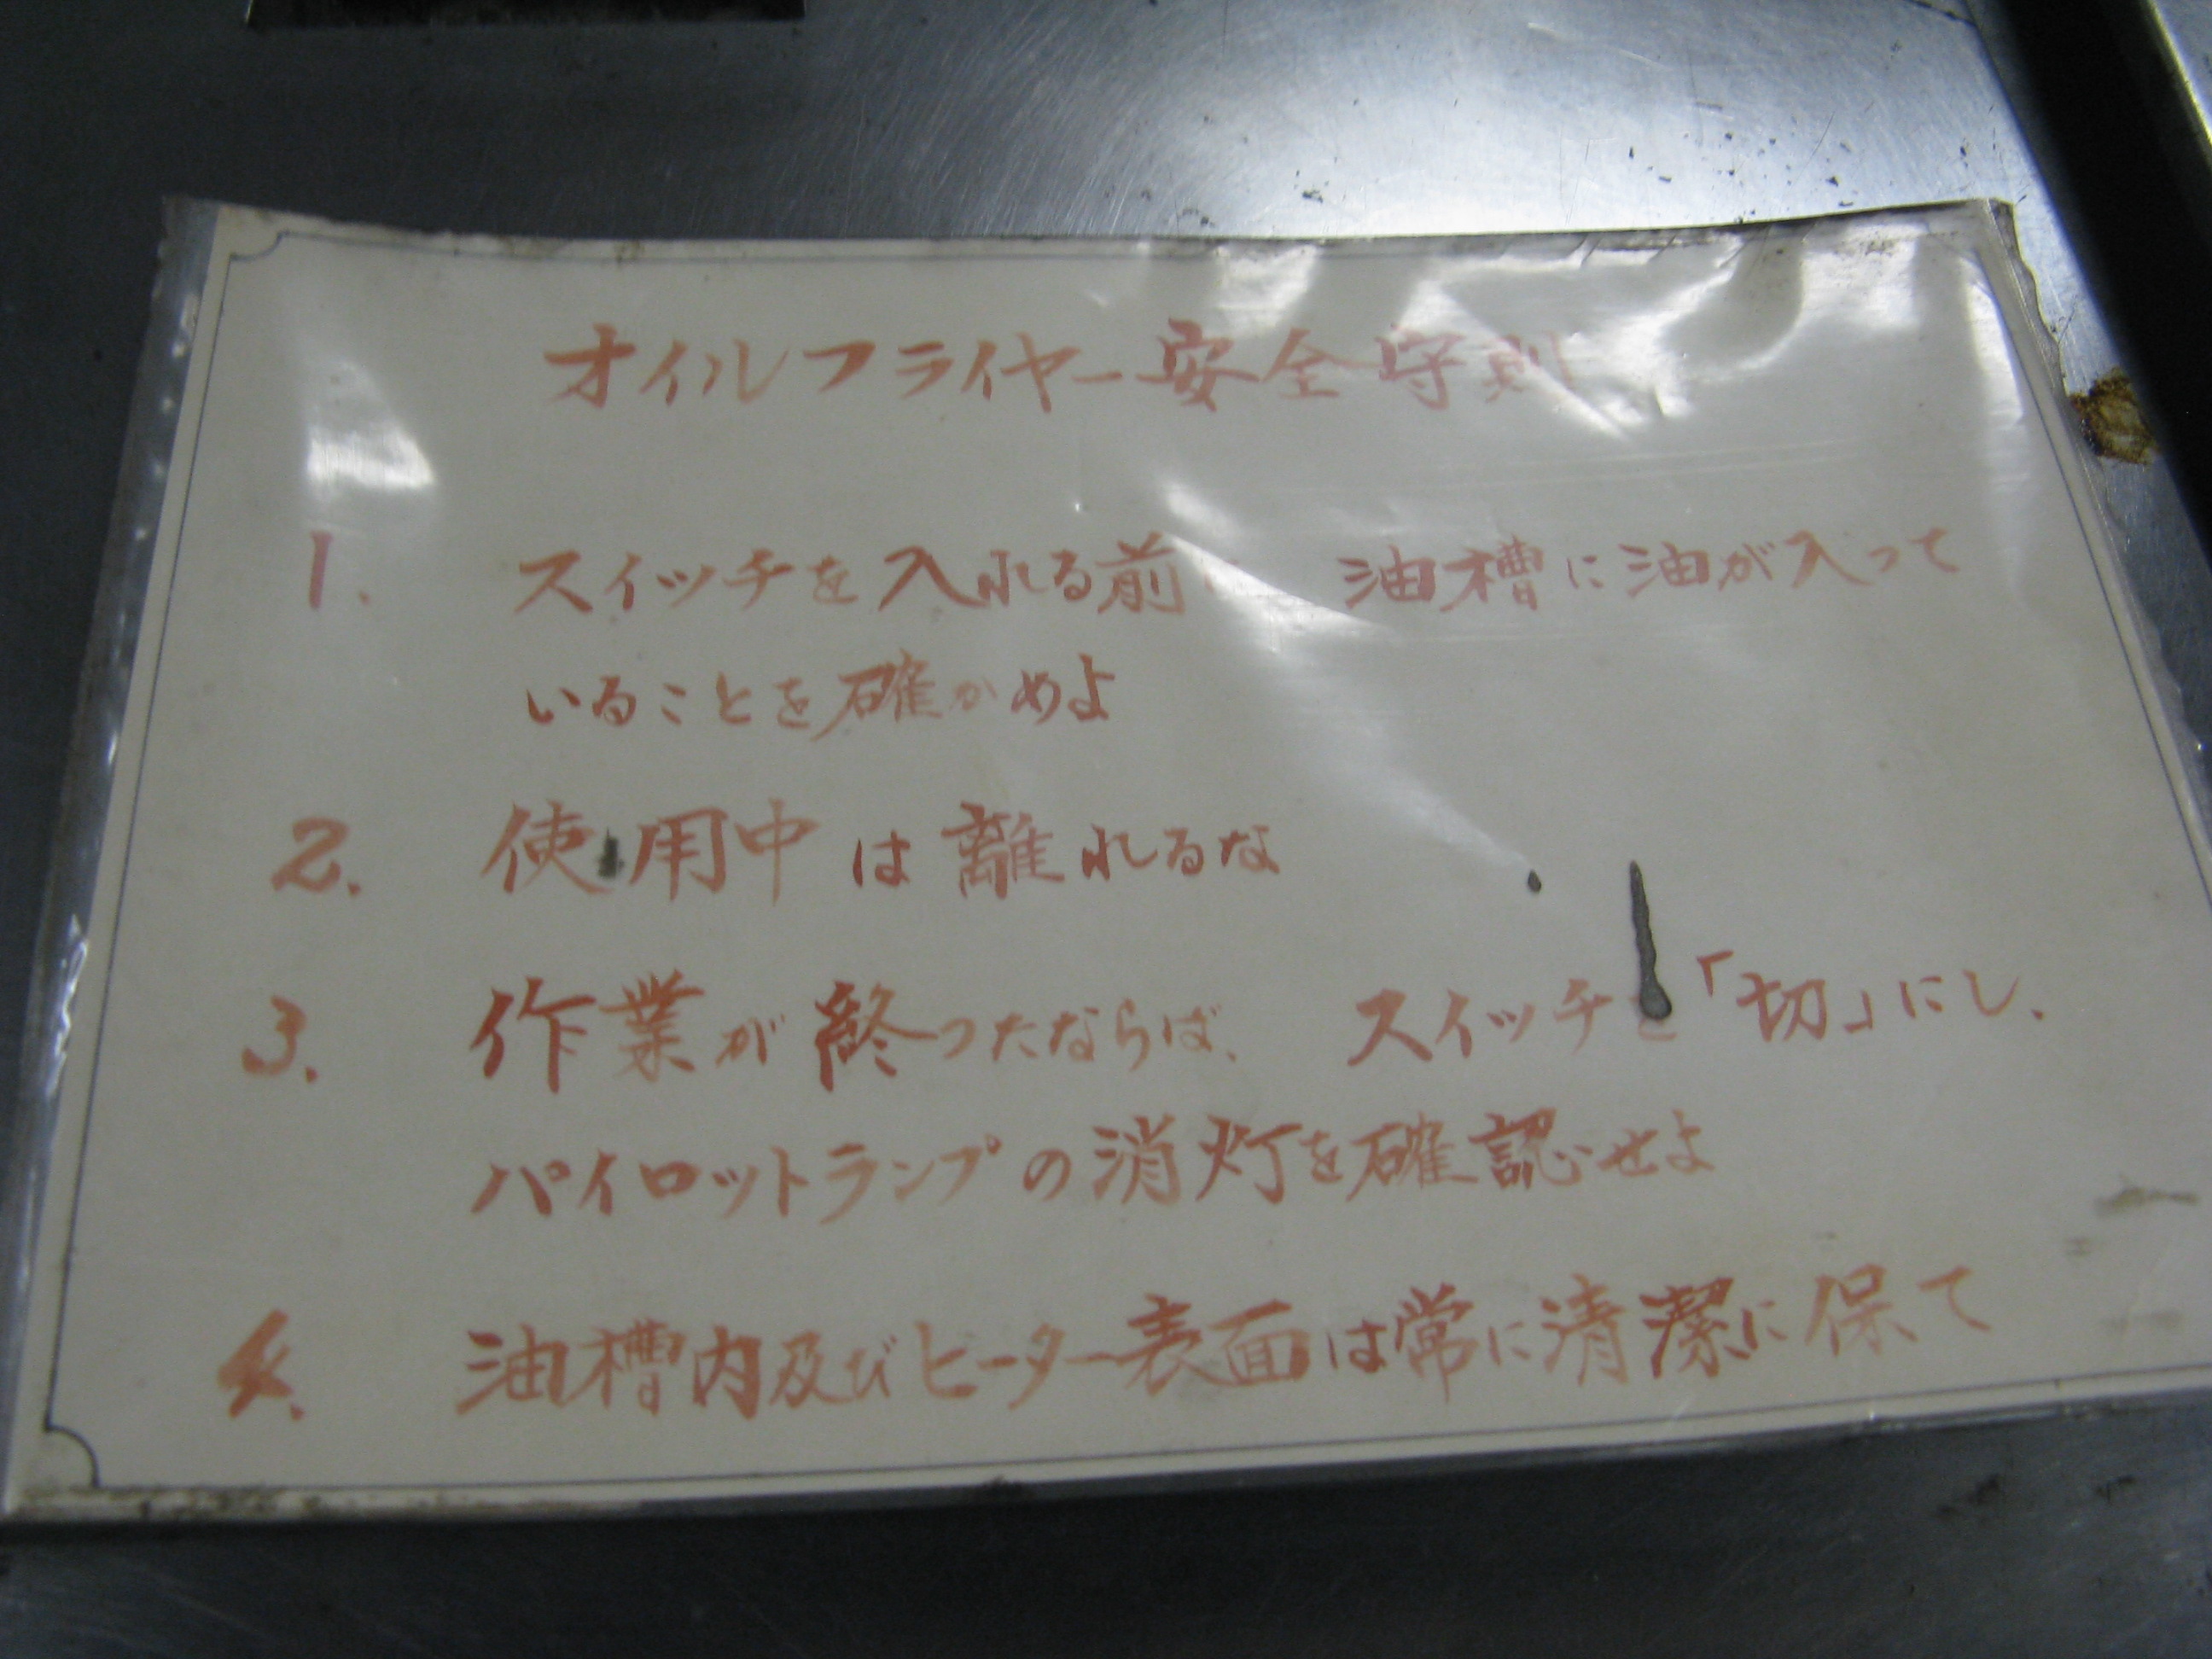 オイルフライヤー安全守則
1. スイッチを入れる前に 油槽に油が入って
いることを確かめよ
2. 使用中は離れるな
3. 作業が終つたならば、 スイッチを「切」にし、
パイロットランプの消灯を確認せよ
4. 油槽内及びヒーター表面は常に清潔に保て